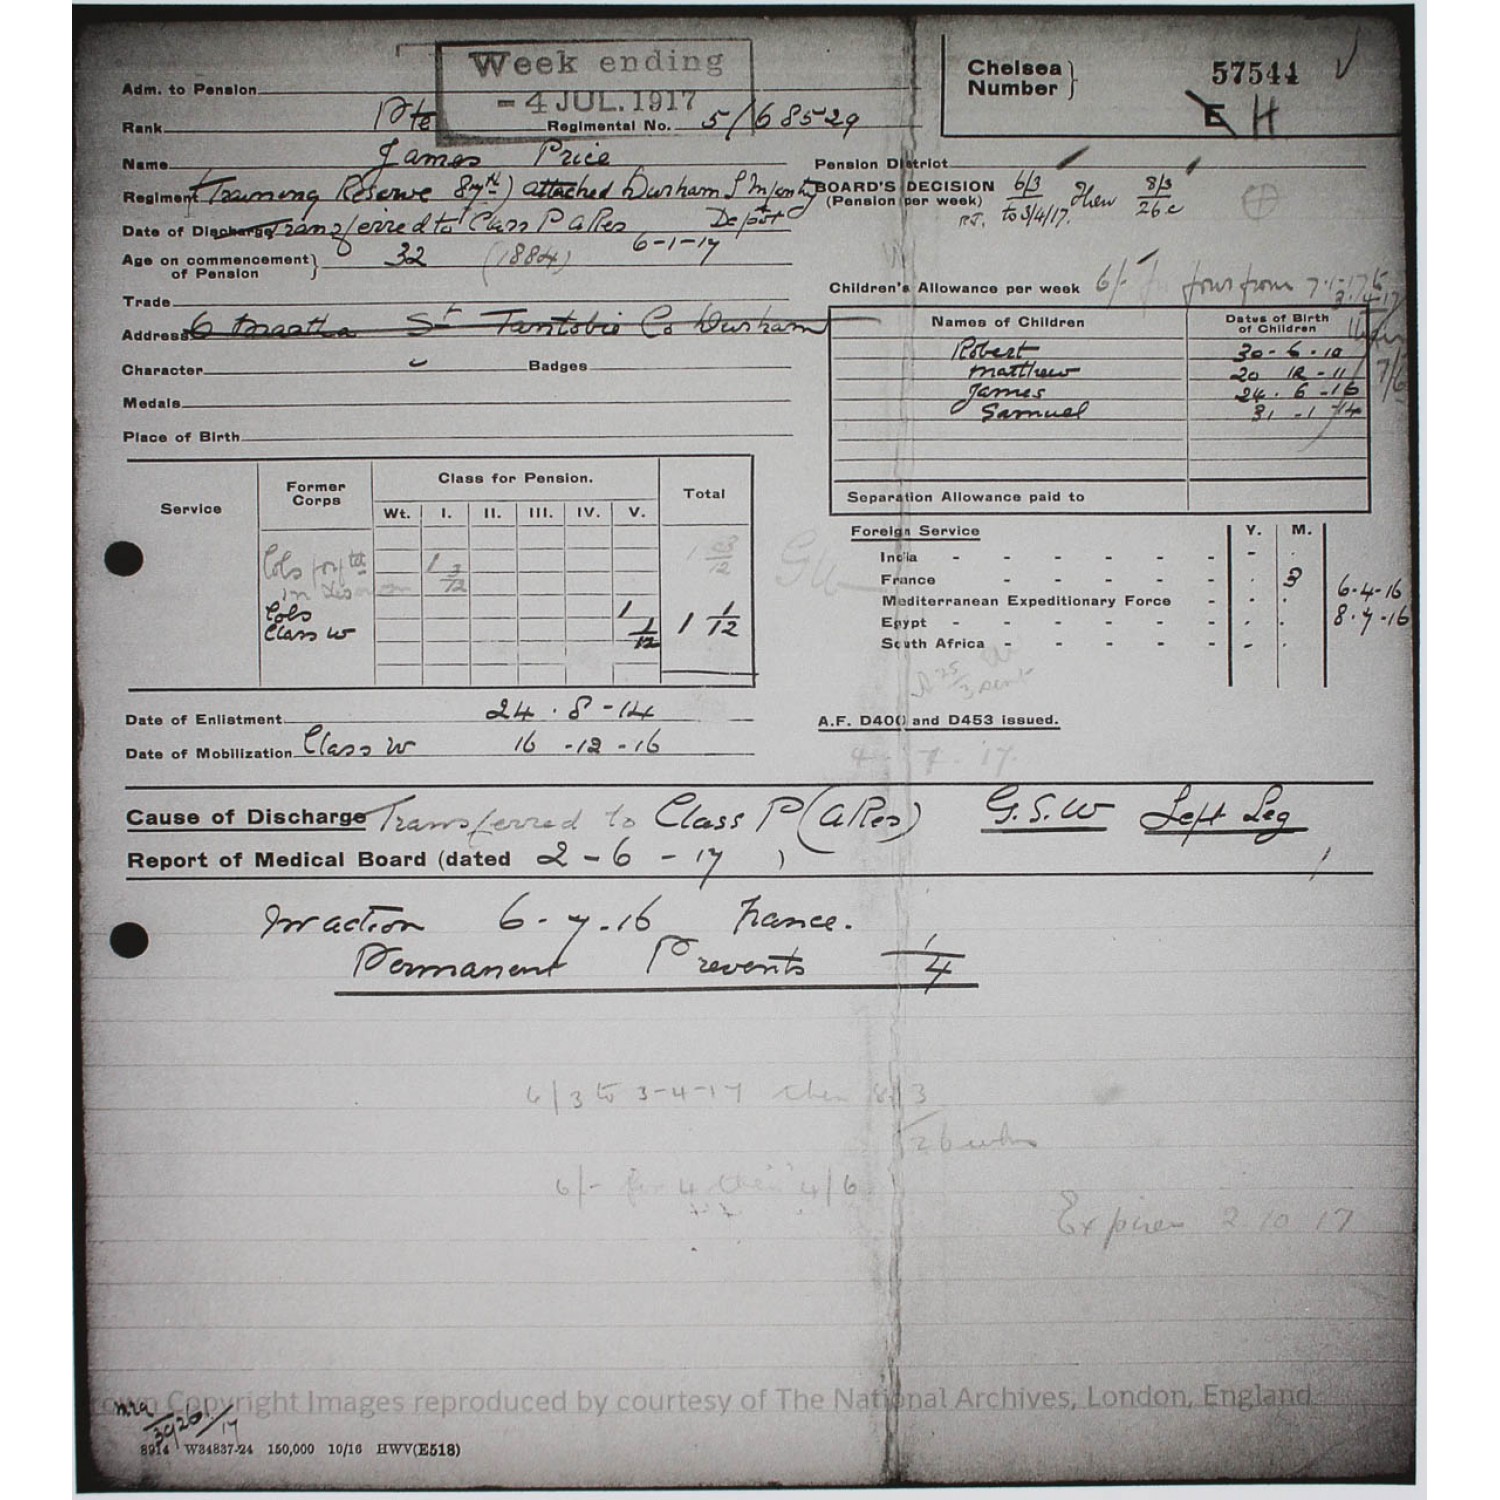 Week ending
- 4 JUL. 1917
Chelsea Number } 57544
E H
Adm. to Pension
Rank Pte Regimental No. 5/68529
Name James Price
Pension District
Regiment (Training Reserve 87th) attached Durham L Infantry
Depot
BOARD'S DECISION (Pension per week) 6/3 to 3/4/17. then 8/3
Date of Discharge Transferred to Class P A Res
6-1-17
Age on commencement of Pension } 32 (1884)
Children's Allowance per week 6/- four from 7-1-17 to 3/4/17
7/6
Trade
Address 6 Martha St Tantobie Co Durham
Names of Children Dates of Birth of Children
Robert 30-6-10
Matthew 20 12-11
James 24.6-16
Samuel 31-1-14
Character Badges
Medals
Place of Birth
Separation Allowance paid to
Service Former Corps Class for Pension. Total
Wt. I. II. III. IV. V.
Cols
1 3/12
Cols 1
Class W 1/12 1 1/12
Foreign Service Y. M.
India
France 3 6-4-16
Mediterranean Expeditionary Force 8.7-16
Egypt
South Africa
Date of Enlistment 24.8-14
Date of Mobilization Class W 16-12-16
A.F. D400 and D453 issued.
4. 7. 17.
Cause of Discharge Transferred to Class P (A Res) G.S.W Left Leg
Report of Medical Board (dated 2-6-17 )
In action 6-7-16 France.
Permanent Prevents 1/4
6/3 to 3-4-17 then 8/3
26 wks
6/- for 4 then 4/6
Expires 2 10 17
Crown Copyright Images reproduced by courtesy of The National Archives, London, England
8914 W34837-24 150,000 10/16 HWV(E518)